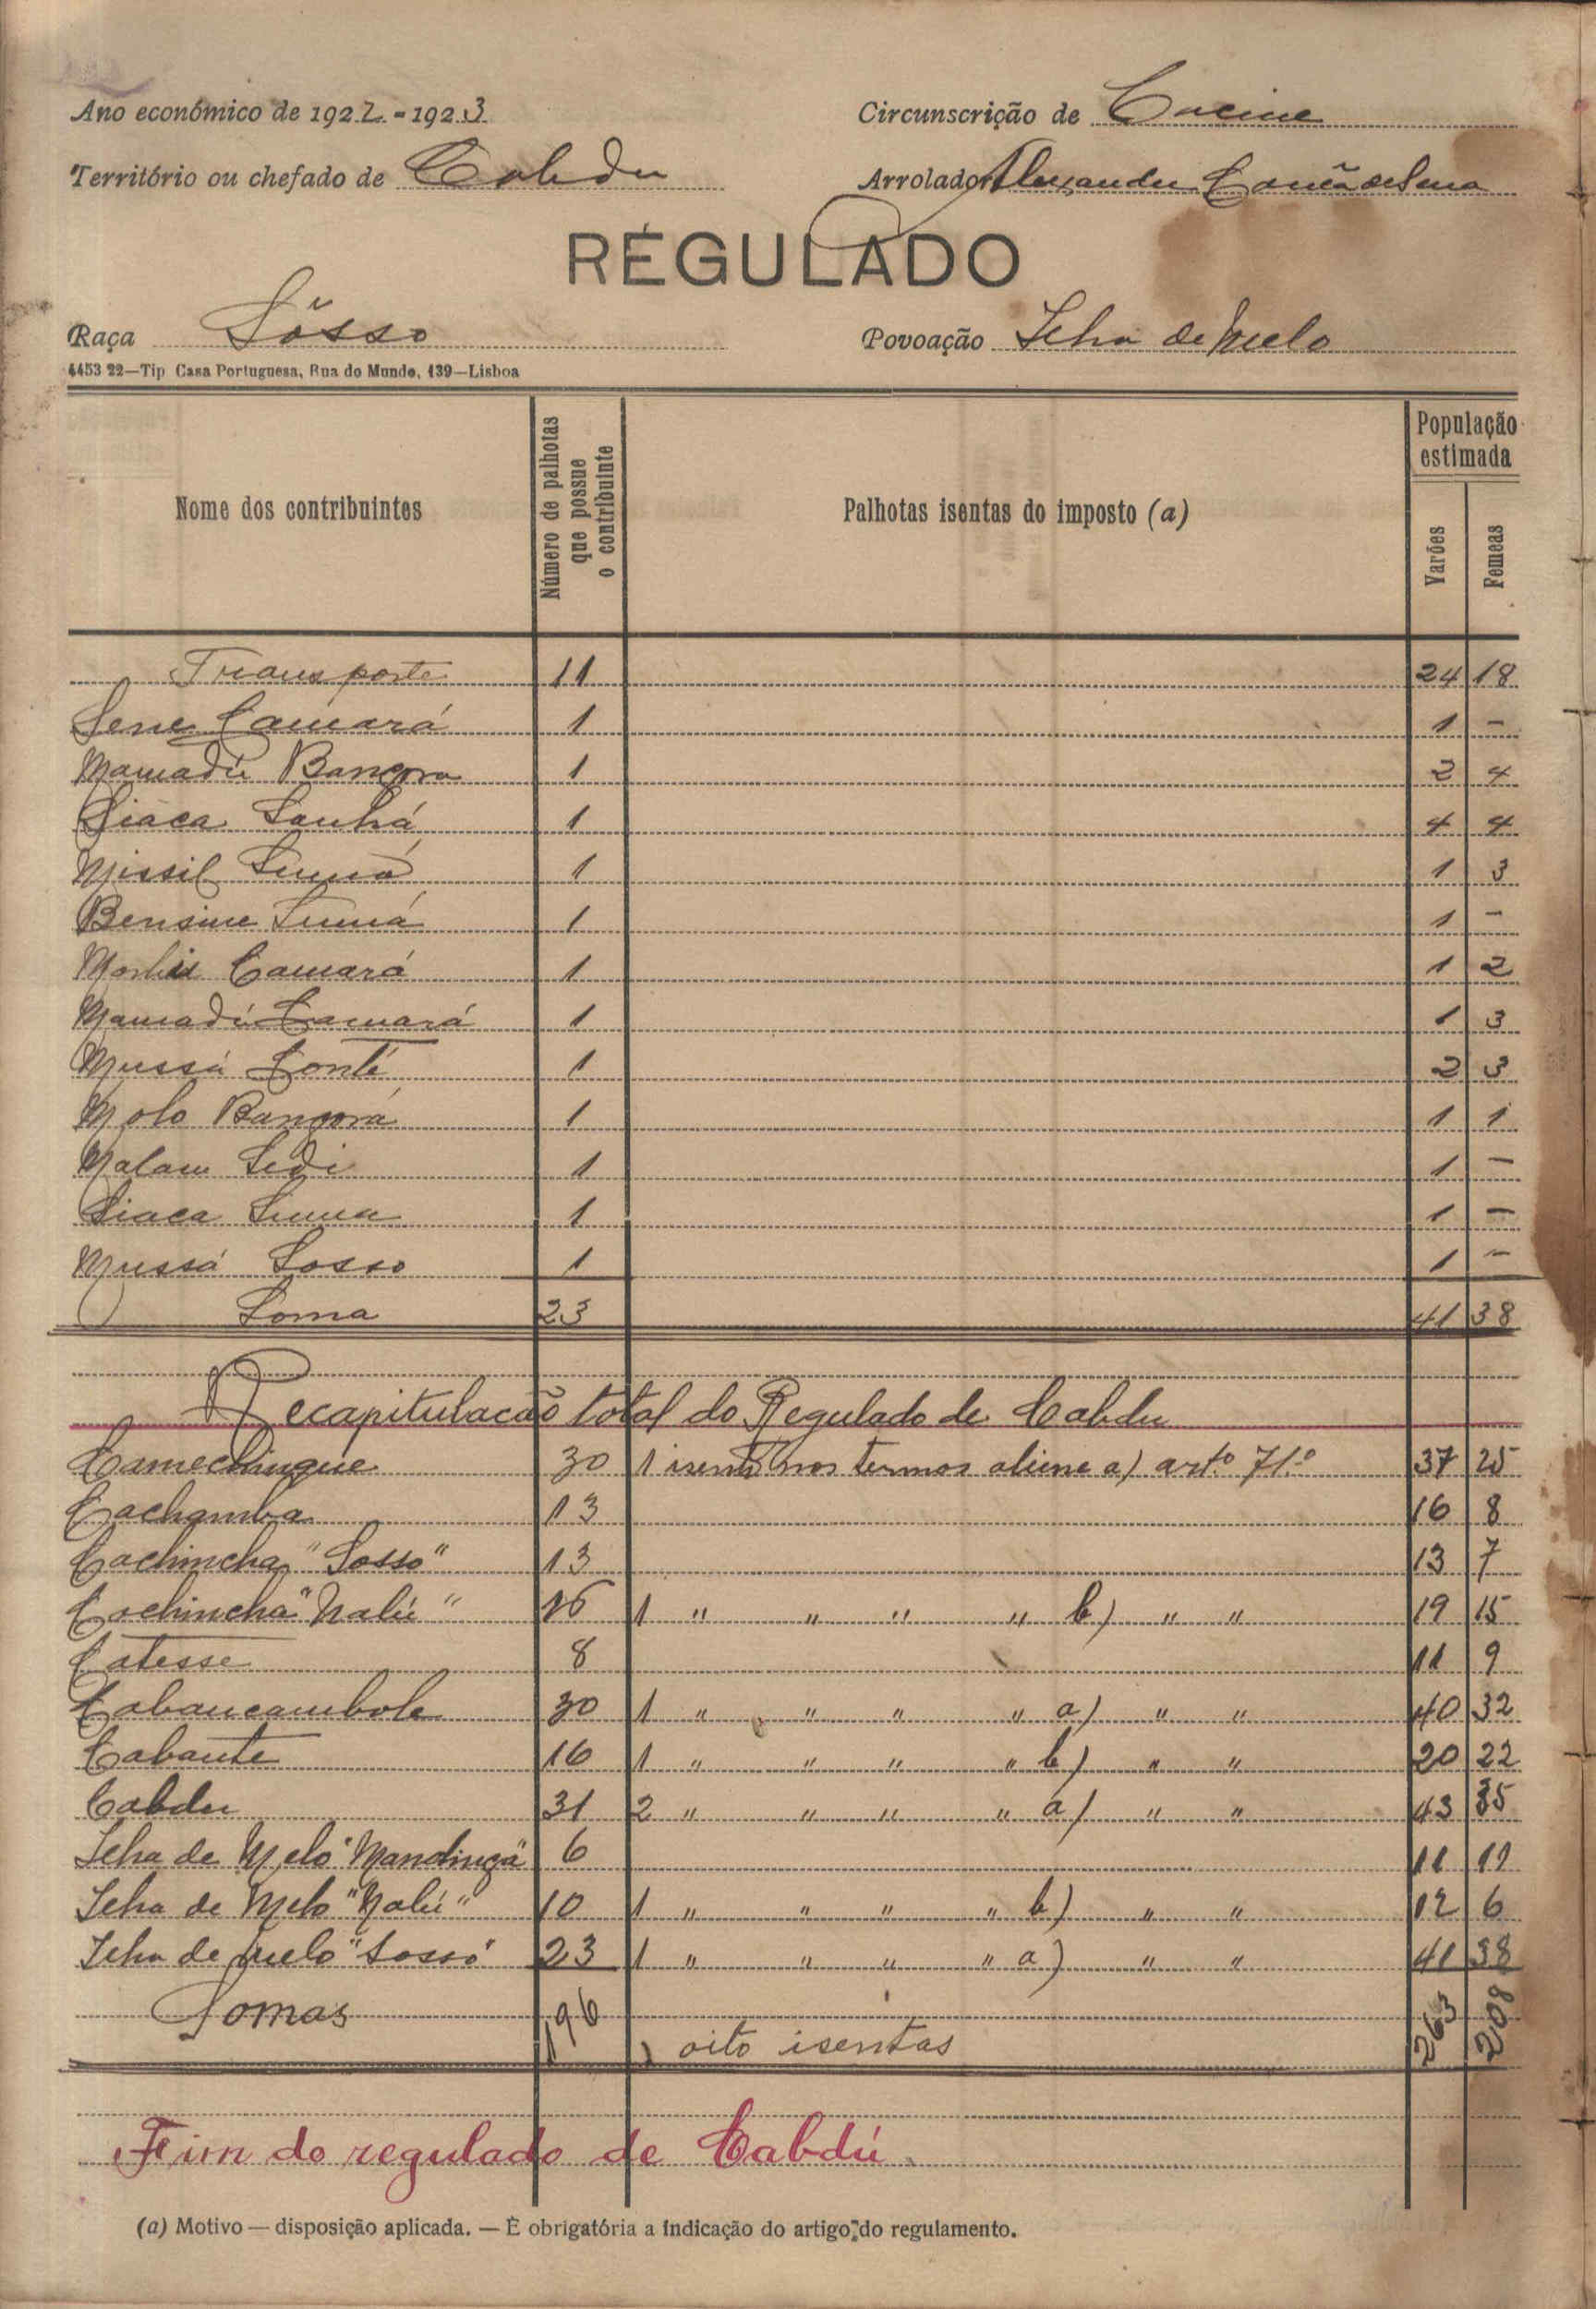 Ano económico de 1922-1923
Circunscrição de Cacine
Território ou chefado de Cabdu
Arrolador Alexandre Corrêa de Sena
REGULADO
Raça Sôsso
Povoação Ilha de Melo
4453 22—Tip Casa Portuguesa, Rua do Mundo, 139—Lisboa
Nome dos contribuintes
Número de palhotas que possue o contribuinte
Palhotas isentas do imposto (a)
População estimada
Varões
Femeas
Transporte 11 24 18
Sene Camará 1 1 -
Mamadú Bangora 1 2 4
Siaca Sanhá 1 4 4
Missil Sumá 1 1 3
Bensine Sumá 1 1 -
Camará 1 1 2
Mamadú Camará 1 1 3
Mussá Conté 1 2 3
Molo Bangorá 1 1 1
Malam Sidi 1 1 -
Siaca Suma 1 1 -
Mussá Sosso 1 1 -
Soma 23 41 38
Recapitulacão total do Regulado de Cabdu
Camechingue 30 1 isenta nos termos aliene a) art.º 71.º 37 25
Cachamba 13 16 8
Cachincha "Sosso" 13 13 7
Cachincha "Nalú" 16 1 " " " " b) " " 19 15
Catesse 8 11 9
Cabancambole 30 1 " " " " a) " " 40 32
Cabante 16 1 " " " " b) " " 20 22
Cabdu 31 2 " " " " a) " " 43 35
Ilha de Melo "Mandinga" 6 11 11
Ilha de Melo "Nalú" 10 1 " " " " b) " " 12 6
Ilha de Melo "Sosso" 23 1 " " " " a) " " 41 38
Somas 196 263 208
oito isentas
Fim do regulado de Cabdú.
(a) Motivo — disposição aplicada. — É obrigatória a indicação do artigo do regulamento.